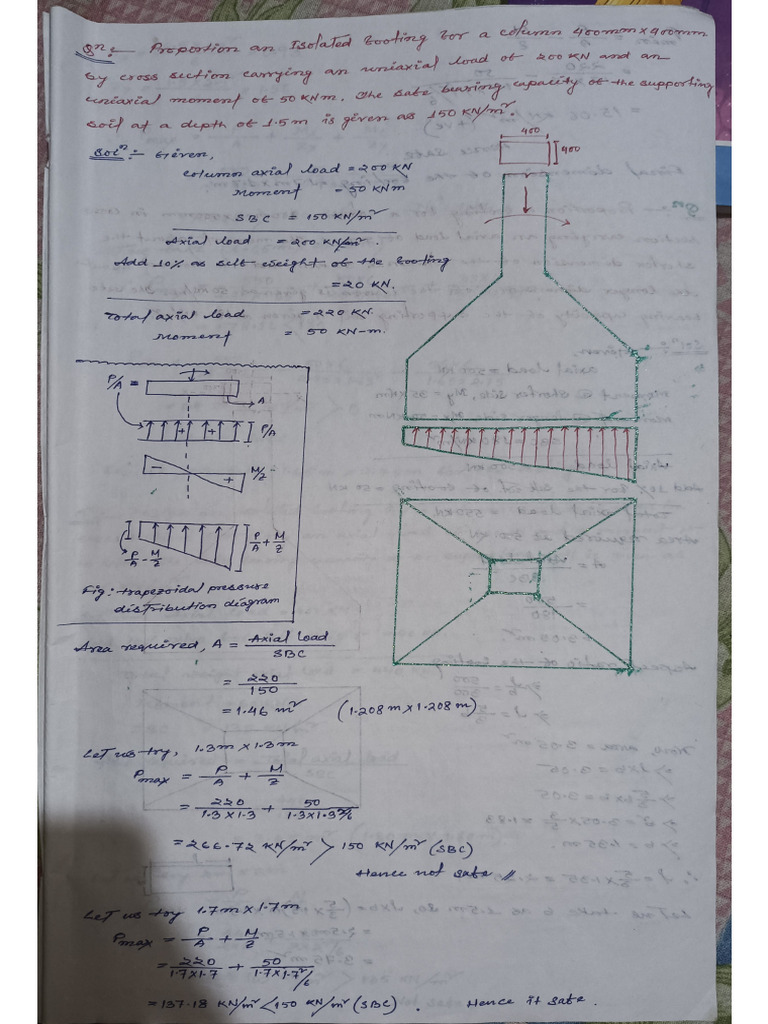 Qⁿ:- Proportion an Isolated footing for a column 400mm×400mm
by cross section carrying an uniaxial load of 200 KN and an
uniaxial moment of 50 KNm. The safe bearing capacity of the supporting
soil at a depth of 1.5m is given as 150 KN/m².
Solⁿ:- Given,
Column axial load = 200 KN
Moment = 50 KNm
SBC = 150 KN/m²
Axial load = 200 KN/m².
Add 10% as self weight of the footing
= 20 KN.
Total axial load = 220 KN.
Moment = 50 KN-m.
400
400
P/A =
A
+ +
P/A
- +
M/Z
P/A - M/Z
P/A + M/Z
Fig: trapezoidal pressure
distribution diagram
Area required, A = Axial load / SBC
= 220/150
= 1.46 m² (1.208m×1.208m)
Let us try, 1.3m×1.3m
Pmax = P/A + M/Z
= 220/1.3×1.3 + 50/1.3×1.3²/6
= 266.72 KN/m² > 150 KN/m² (SBC)
Hence not safe //
Let us try 1.7m×1.7m
Pmax = P/A + M/Z
= 220/1.7×1.7 + 50/1.7×1.7²/6
= 137.18 KN/m² < 150 KN/m² (SBC). Hence it safe.